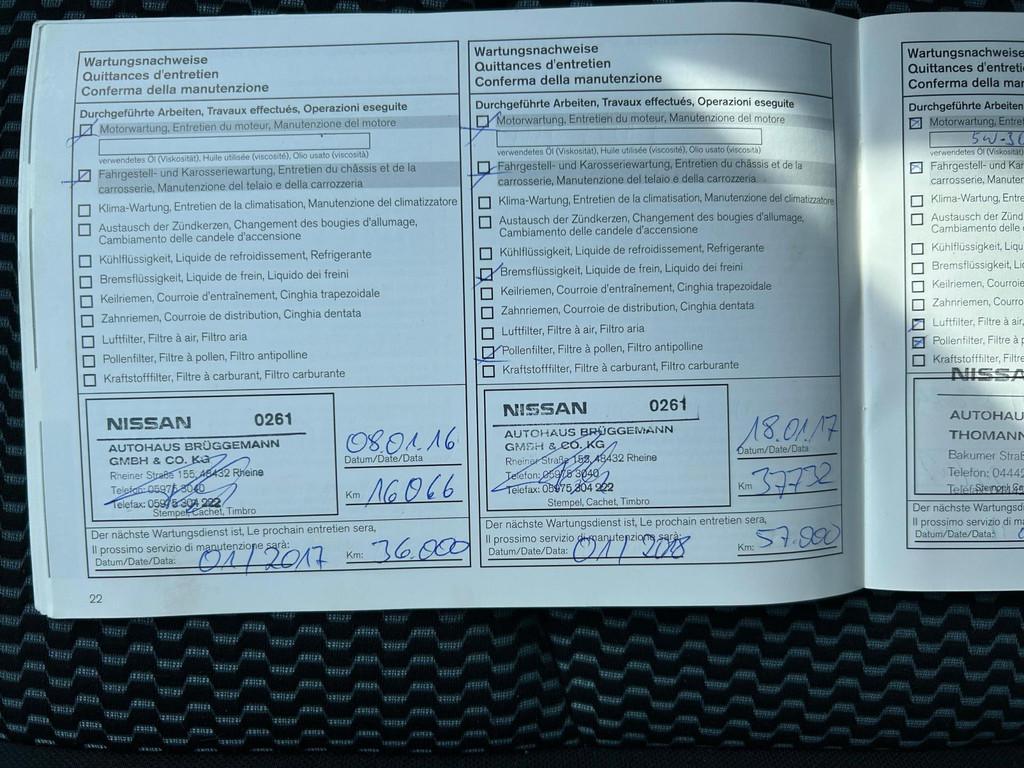 Wartungsnachweise
Quittances d'entretien
Conferma della manutenzione
Durchgeführte Arbeiten, Travaux effectués, Operazioni eseguite
Motorwartung, Entretien du moteur, Manutenzione del motore
verwendetes Öl (Viskosität), Huile utilisée (viscosité), Olio usato (viscosità)
Fahrgestell- und Karosseriewartung, Entretien du châssis et de la
carrosserie, Manutenzione del telaio e della carrozzeria
Klima-Wartung, Entretien de la climatisation, Manutenzione del climatizzatore
Austausch der Zündkerzen, Changement des bougies d'allumage,
Cambiamento delle candele d'accensione
Kühlflüssigkeit, Liquide de refroidissement, Refrigerante
Bremsflüssigkeit, Liquide de frein, Liquido dei freini
Keilriemen, Courroie d'entraînement, Cinghia trapezoidale
Zahnriemen, Courroie de distribution, Cinghia dentata
Luftfilter, Filtre à air, Filtro aria
Pollenfilter, Filtre à pollen, Filtro antipolline
Kraftstofffilter, Filtre à carburant, Filtro carburante
NISSAN 0261
AUTOHAUS BRÜGGEMANN
GMBH & CO. KG
Rheiner Straße 155, 48432 Rheine
Telefon: 05975 3040
Telefax: 05975 304 222
Stempel, Cachet, Timbro
08.01.16
Datum/Date/Data
Km 16066
Der nächste Wartungsdienst ist, Le prochain entretien sera,
Il prossimo servizio di manutenzione sarà:
Datum/Date/Data: 01/2017 Km: 36.000
22
Wartungsnachweise
Quittances d'entretien
Conferma della manutenzione
Durchgeführte Arbeiten, Travaux effectués, Operazioni eseguite
Motorwartung, Entretien du moteur, Manutenzione del motore
verwendetes Öl (Viskosität), Huile utilisée (viscosité), Olio usato (viscosità)
Fahrgestell- und Karosseriewartung, Entretien du châssis et de la
carrosserie, Manutenzione del telaio e della carrozzeria
Klima-Wartung, Entretien de la climatisation, Manutenzione del climatizzatore
Austausch der Zündkerzen, Changement des bougies d'allumage,
Cambiamento delle candele d'accensione
Kühlflüssigkeit, Liquide de refroidissement, Refrigerante
Bremsflüssigkeit, Liquide de frein, Liquido dei freini
Keilriemen, Courroie d'entraînement, Cinghia trapezoidale
Zahnriemen, Courroie de distribution, Cinghia dentata
Luftfilter, Filtre à air, Filtro aria
Pollenfilter, Filtre à pollen, Filtro antipolline
Kraftstofffilter, Filtre à carburant, Filtro carburante
NISSAN 0261
AUTOHAUS BRÜGGEMANN
GMBH & CO. KG
Rheiner Straße 155, 48432 Rheine
Telefon: 05975 3040
Telefax: 05975 304 222
Stempel, Cachet, Timbro
18.01.17
Datum/Date/Data
Km 37732
Der nächste Wartungsdienst ist, Le prochain entretien sera,
Il prossimo servizio di manutenzione sarà:
Datum/Date/Data: 01/2018 Km: 57.000
Wartungsnachweise
Quittances d'entreti
Conferma della man
Durchgeführte Arbeiten
Motorwartung, Entret
5W-30
verwendetes Öl (Viskosität)
Fahrgestell- und Kar
carrosserie, Manuten
Klima-Wartung, Entre
Austausch der Zünd
Cambiamento delle
Kühlflüssigkeit, Liqu
Bremsflüssigkeit, Li
Keilriemen, Courroie
Zahnriemen, Courro
Luftfilter, Filtre à air,
Pollenfilter, Filtre à p
Kraftstofffilter, Filtre
NISSA
AUTOHAU
THOMANN
Bakumer Straß
Telefon: 0444
Stempel, Ca
Der nächste Wartungsd
Il prossimo servizio di m
Datum/Date/Data: